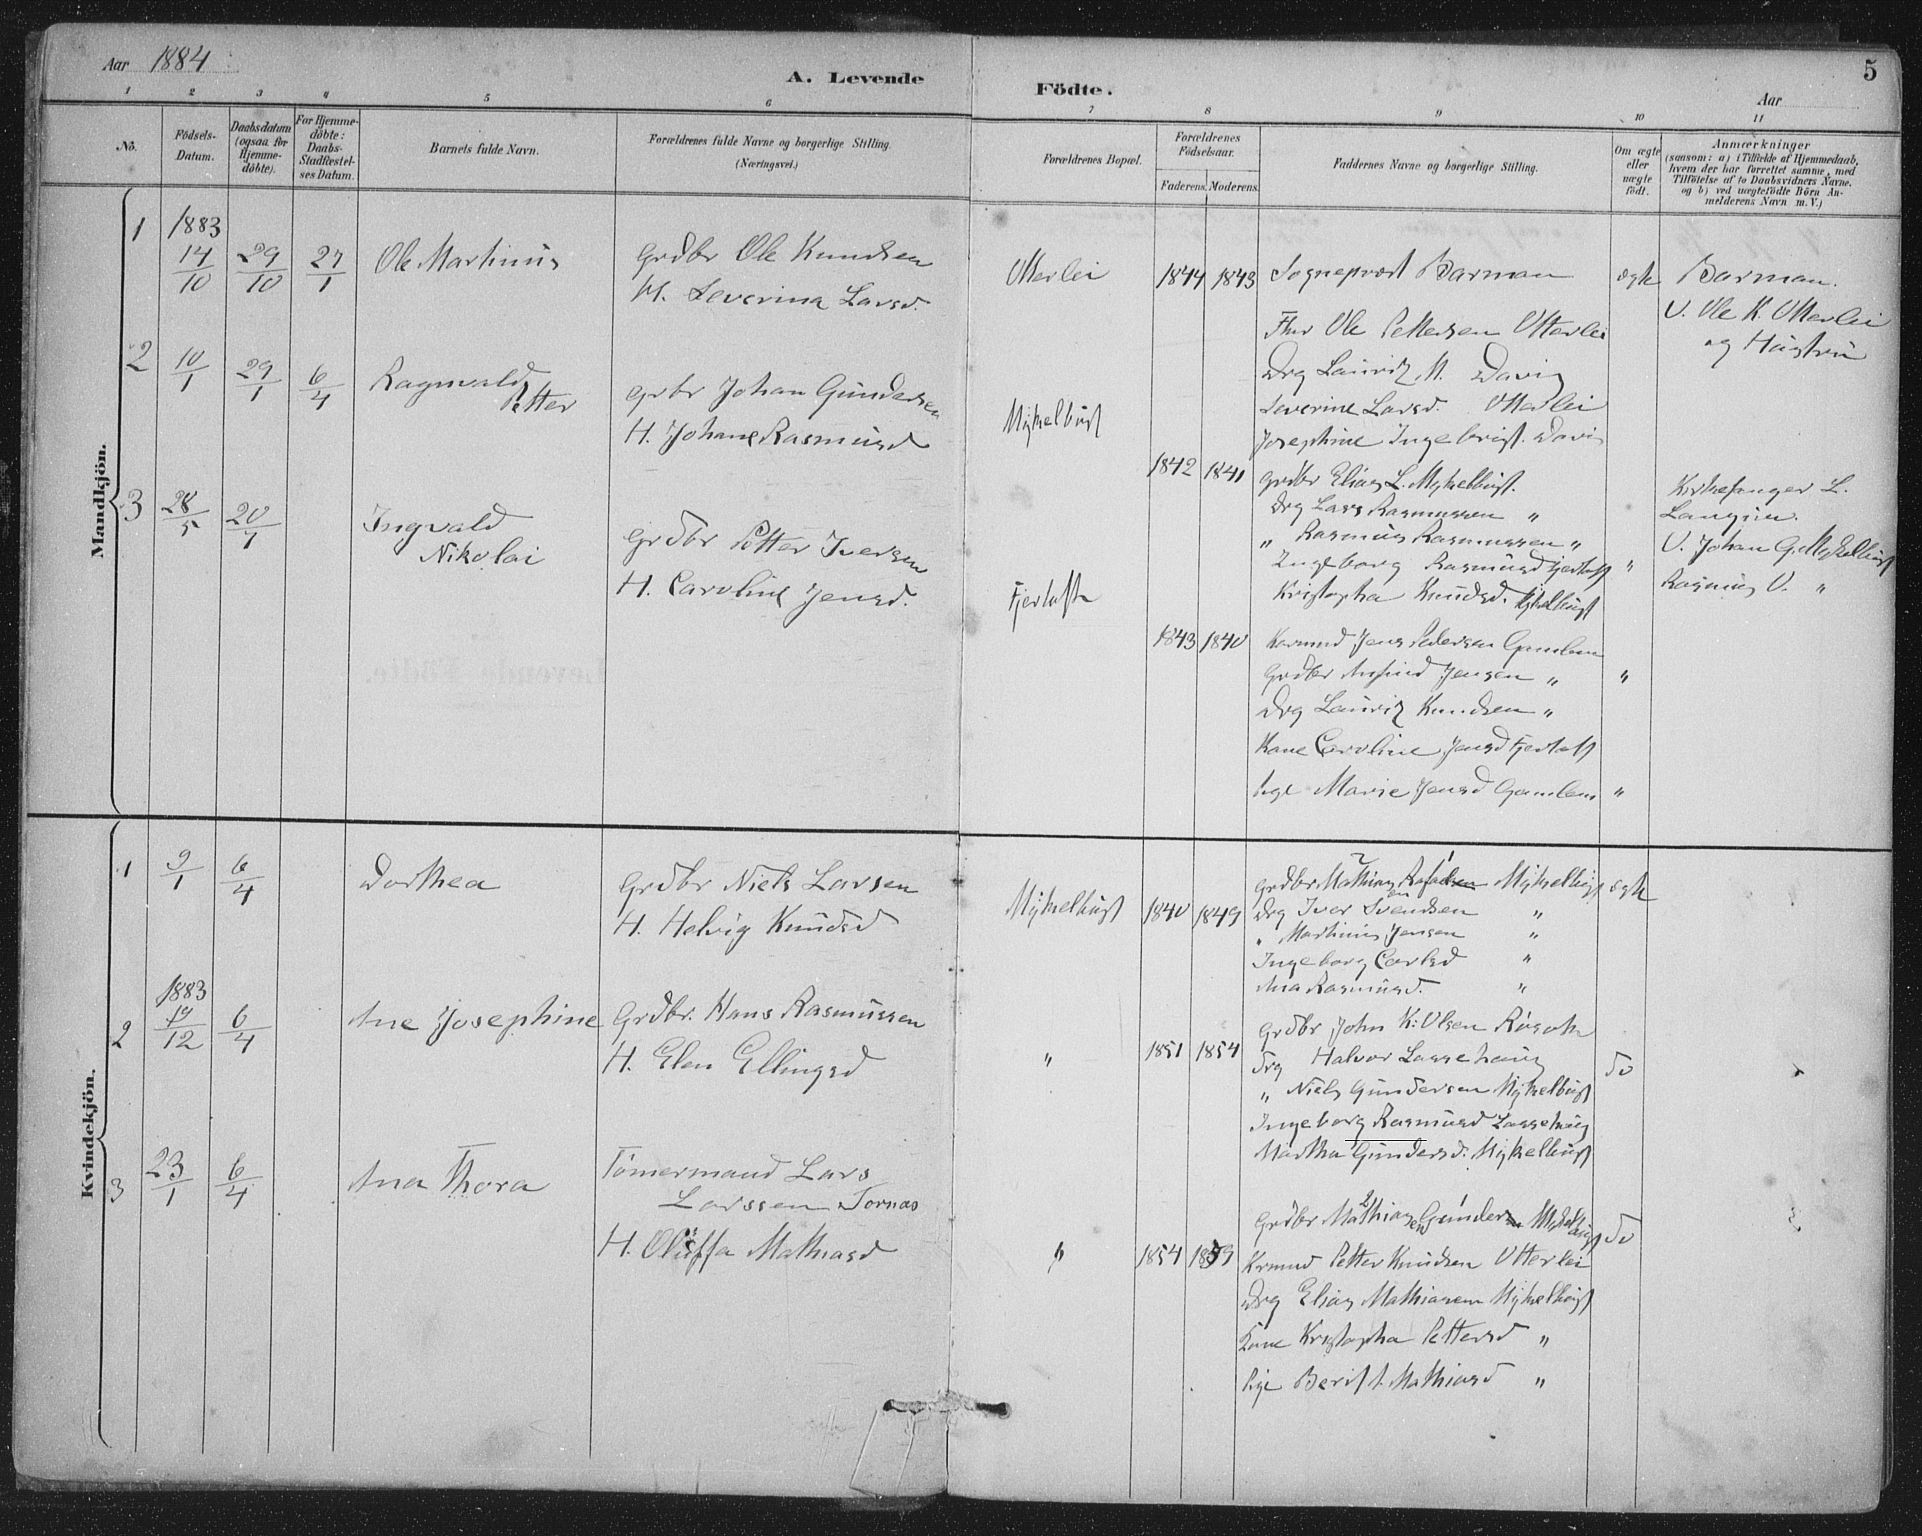 Aar 1884
A. Levende
Födte.
Aar
5
1 2 3 4 5 6 7 8 9 10 11
No.
Födsels-
Datum.
Daabsdatum
(ogsaa for
Hjemme-
döbte).
For Hjemme-
döbte:
Daabs-
Stadfæstel-
ses Datum.
Barnets fulde Navn.
Forældrenes fulde Navne og borgerlige Stilling.
(Næringsvei.)
Forældrenes Bopæl.
Forældrenes
Födselsaar.
Faderens. Moderens.
Faddernes Navne og borgerlige Stilling.
Om ægte
eller
uægte
födt.
Anmærkninger
(saasom: a) i Tilfælde af Hjemmedaab,
hvem der har forrettet samme, med
Tilföielse af to Daabsvidners Navne.
og b) ved uægtefödte Börn An-
melderens Navn m. V.)
Mandkjön.
1
1883
14/10 29/10 27/1
Ole Martinus
Grdbr Ole Knudsen
H. Severina Larsd.
Utterlei
1844 1843
Sogneprest Barman
Ole Pettersen Utterlei
Drg Lauritz M. Davig
Severine Larsd. Utterlei
Josephine Ingebrigt. Davig
ægte
Barman.
V. Ole K. Utterlei
og Hustru
2
10/1 29/1 6/4
Ragnvald
Petter
Grbr Johan Gundersen
H. Johane Rasmusd
Myklebust
1842 1841
Grdbr Elias L. Myklebust.
Drg Lars Rasmussen "
" Rasmus Rasmussen "
Ingeborg Rasmusd Fjertoft
Kristopha Knudsd. Myklebust
"
Kirkesanger L.
V. Johan G. Myklebust
Rasmus V. "
3
28/5 20/7
Ingvald
Nikolai
Grdbr Petter Iversen
H. Caroline Jensd.
Fjertoft
1843 1840
Jens Pedersen Gamlem
Grdbr Jensen "
Drg Lauritz Knudsen "
Kone Caroline Jensd Fjertoft
Pige Marie Jensd Gamlem
"
"
Levende Födte.
Kvindekjön.
1
9/1 6/4
Dorthea
Grdbr Niels Larsen
H. Helvig Knudsd
Myklebust
1840 1849
Grdbr Mathias Myklebust
Drg Iver Svendsen "
" Martinus Jensen "
Ingeborg Carlsd "
Ana Rasmusd. "
ægte
2
1883
/12 6/4
Ane Josephine
Grdbr. Hans Rasmussen
H. Elen Ellingsd
"
1851 1854
Grdbr John K. Olsen
Drg Halvor Lassehaug
" Niels Gundersen Myklebust
Ingeborg Rasmusd Lassehaug
Martha Gundersd. Myklebust
do
3
23/1 6/4
Ana Thora
Tömermand Lars
Larssen Tornas
H. Oluffa Mathiasd
"
1854
Grdbr Mathias Gunder Myklebust
Krmnd Petter Knudsen Utterlei
Drg Elias Mathiasen Myklebust
Kone Kristopha Pettersd "
Pige Berit A. Mathiasd "
do